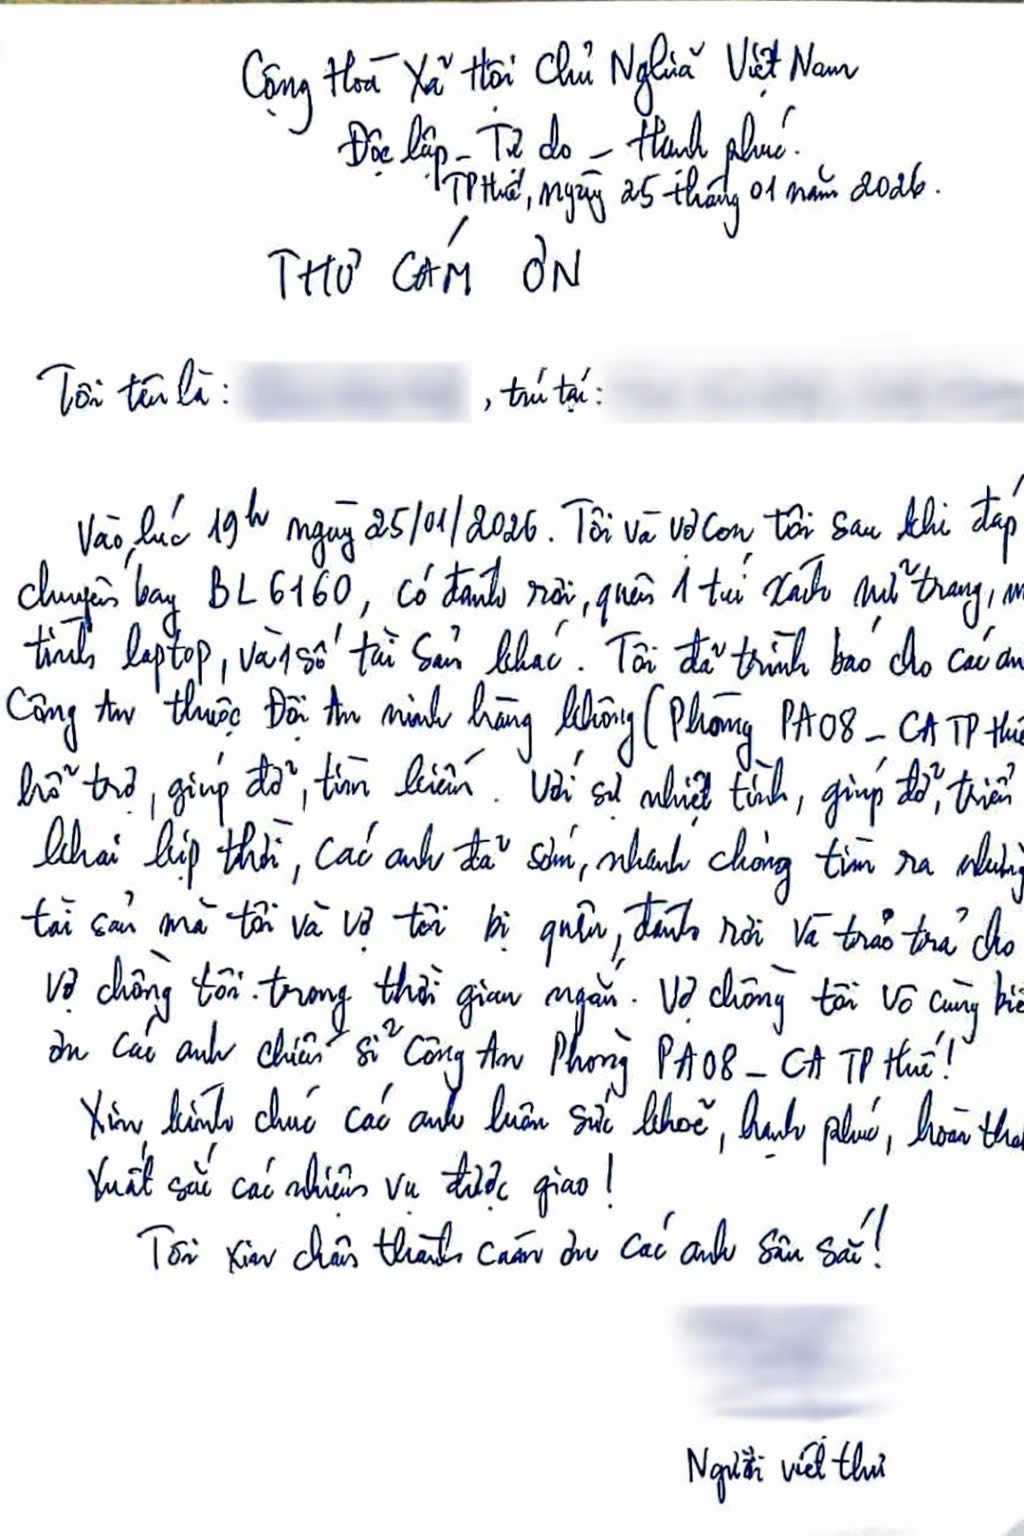 Cộng Hoà Xã Hội Chủ Nghĩa Việt Nam
Độc lập - Tự do - Hạnh phúc.
TP Huế, ngày 25 tháng 01 năm 2026.
THƯ CẢM ƠN
Tôi tên là: , trú tại:
Vào lúc 19h ngày 25/01/2026. Tôi và vợ con tôi sau khi đáp
chuyến bay BL6160, có đánh rơi, quên 1 túi xách nữ trang,
tính laptop, và 1 số tài sản khác. Tôi đã trình báo cho các
Công An thuộc Đội An ninh hàng không (Phòng PA08 - CA TP Huế
hỗ trợ, giúp đỡ, tìm kiếm. Với sự nhiệt tình, giúp đỡ, triển
khai kịp thời, các anh đã sớm, nhanh chóng tìm ra những
tài sản mà tôi và vợ tôi bị quên, đánh rơi và trao trả cho
vợ chồng tôi trong thời gian ngắn. Vợ chồng tôi vô cùng
ơn các anh chiến sĩ Công An Phòng PA08 - CA TP Huế!
Xin kính chúc các anh luôn sức khoẻ, hạnh phúc, hoàn
xuất sắc các nhiệm vụ được giao!
Tôi xin chân thành cảm ơn các anh sâu sắc!
Người viết thư